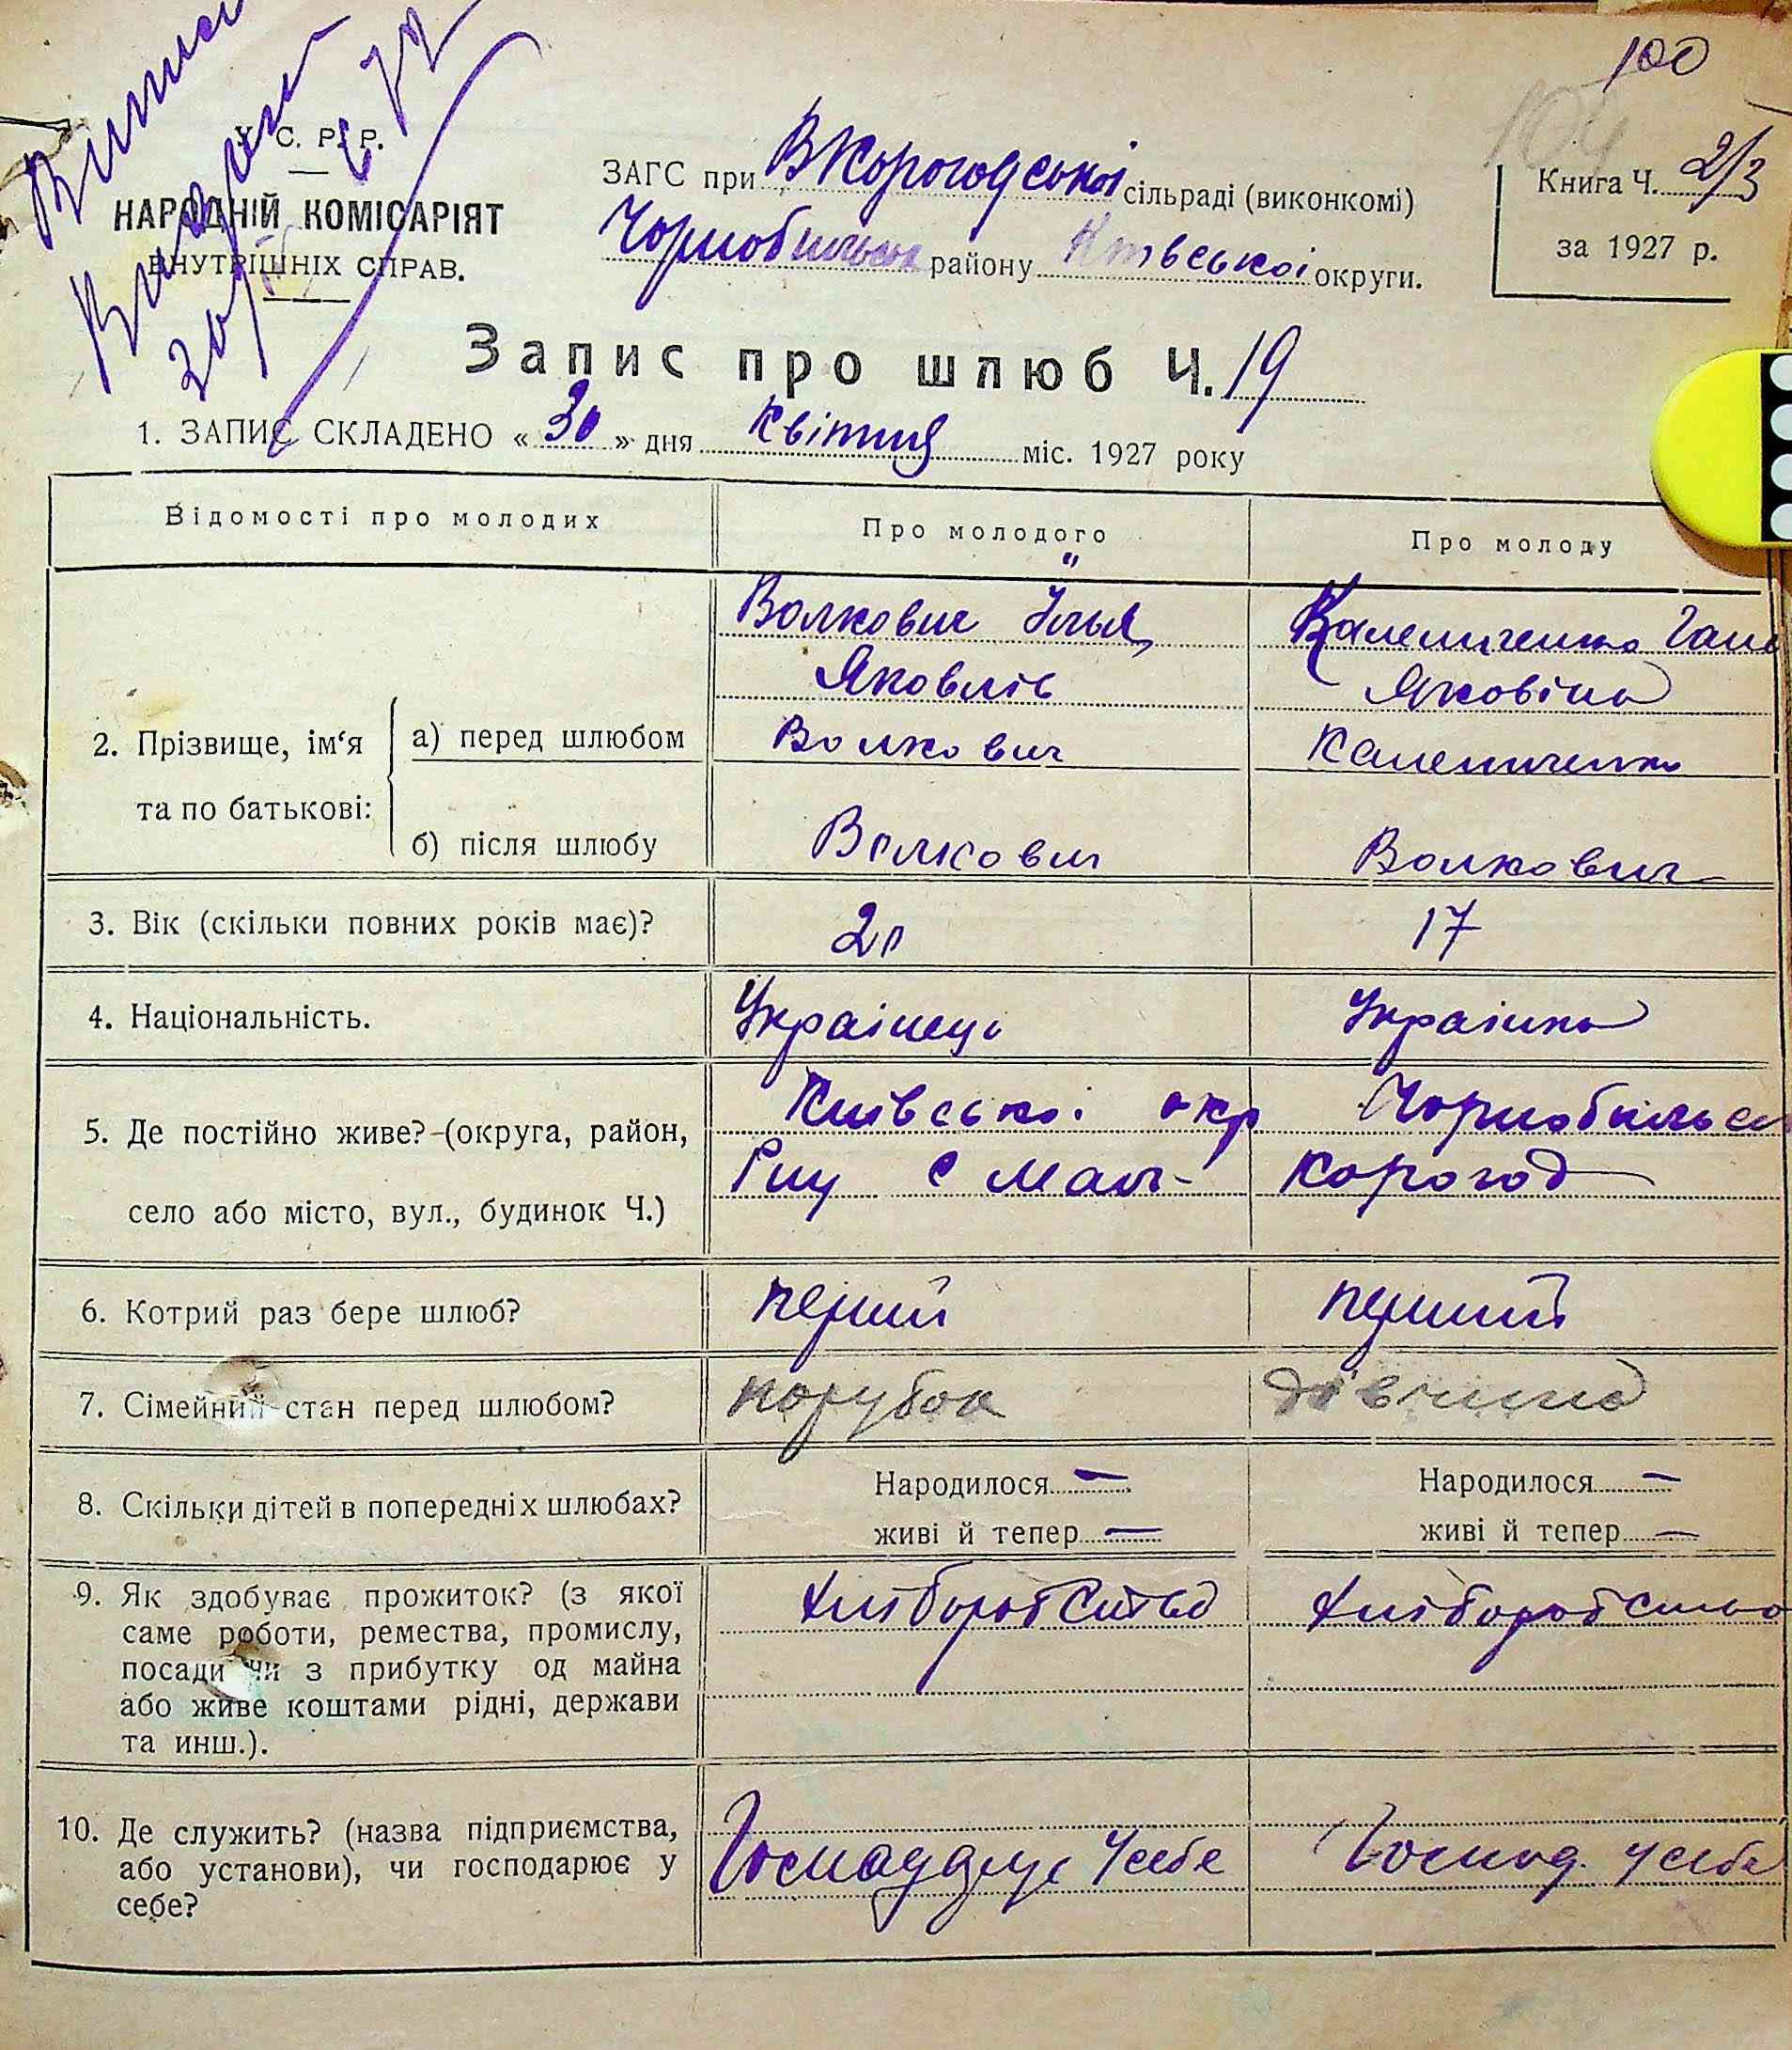 100
104
У. С. Р. Р.
НАРОДНІЙ КОМІСАРІЯТ
ВНУТРІШНІХ СПРАВ.
ЗАГС при ВКорогодської сільраді (виконкомі)
Чорнобильськ району Київської округи.
Книга Ч. 2/3
за 1927 р.
Запис про шлюб Ч. 19
1. ЗАПИС СКЛАДЕНО « 30 » дня Квітня міс. 1927 року
Відомості про молодих Про молодого Про молоду
2. Прізвище, ім‘я та по батькові:
Волкович Ілья
Яковлів
Калениченко Ган
Яковівна
а) перед шлюбом Волкович Калениченко
б) після шлюбу Волкович Волкович
3. Вік (скільки повних років має)? 20 17
4. Національність. Украінець Украінка
5. Де постійно живе? (округа, район, Киівськоі окр Чорнобильск
село або місто, вул., будинок Ч.) Рну с Мал- Корогод
6. Котрий раз бере шлюб? перший перший
7. Сімейний стан перед шлюбом? порубок дівчина
8. Скільки дітей в попередніх шлюбах? Народилося — Народилося —
живі й тепер — живі й тепер —
9. Як здобуває прожиток? (з якої
саме роботи, ремества, промислу,
посади чи з прибутку од майна
або живе коштами рідні, держави
та инш.).
Хліборобство Хліборобство
10. Де служить? (назва підприємства,
або установи), чи господарює у
себе?
Госпадарує у себе Господ. у себе